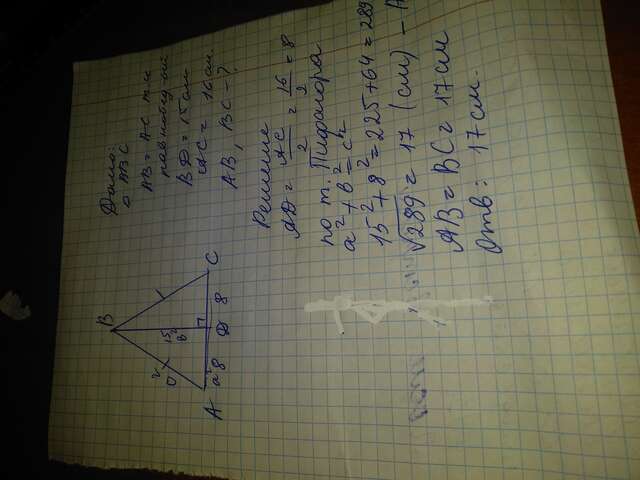 Дано:
△ ABC
AB = AC т.к
равнобедрый
BD = 15 см
AC = 16 см.
AB, BC - ?
B
15
в
A
a
8
D
8
C
Решение
AD = AC/2 = 16/2 = 8
по т. Пифагора
a² + в² = c²
15² + 8² = 225 + 64 = 289
√289 = 17 (см) -
AB = BC = 17 см
Отв: 17 см.